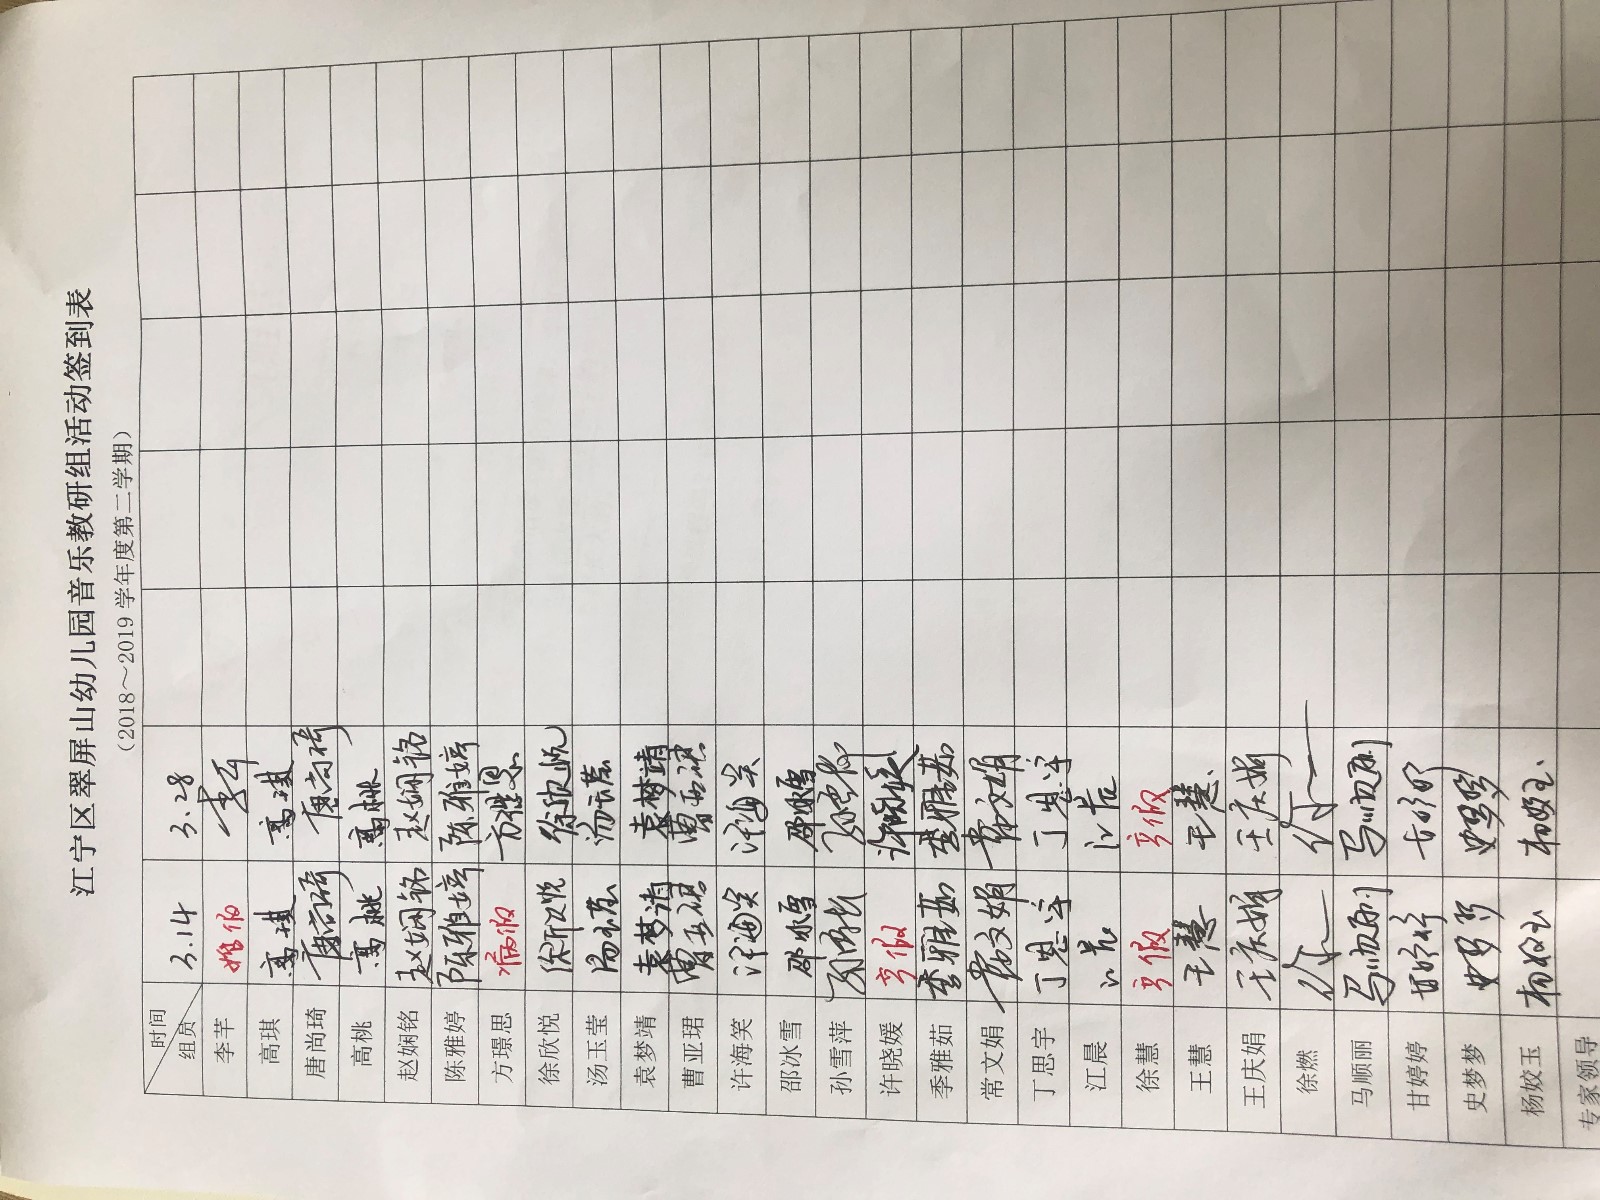 江宁区翠屏山幼儿园音乐教研组活动签到表
（2018～2019 学年度第二学期）
时间 组员 3.14 3.28
李芊 婚假 李芊
高琪 高琪 高琪
唐尚琦 唐尚琦 唐尚琦
高桃 高桃 高桃
赵娴铭 赵娴铭 赵娴铭
陈雅婷 陈雅婷 陈雅婷
方璟思 病假 方璟思
徐欣悦 徐欣悦 徐欣悦
汤玉莹 汤玉莹 汤玉莹
袁梦靖 袁梦靖 袁梦靖
曹亚珺 曹亚珺 曹亚珺
许海笑 许海笑 许海笑
邵冰雪 邵冰雪 邵冰雪
孙雪萍
许晓媛 产假 许晓媛
季雅茹 季雅茹 季雅茹
常文娟 常文娟 常文娟
丁思宇 丁思宇 丁思宇
江晨 江晨 江晨
徐慧 产假 产假
王慧 王慧 王慧
王庆娟 王庆娟 王庆娟
徐燃
马顺丽 马顺丽 马顺丽
甘婷婷 甘婷婷 甘婷婷
史梦梦 史梦梦 史梦梦
杨姣玉 杨姣玉 杨姣玉
专家领导